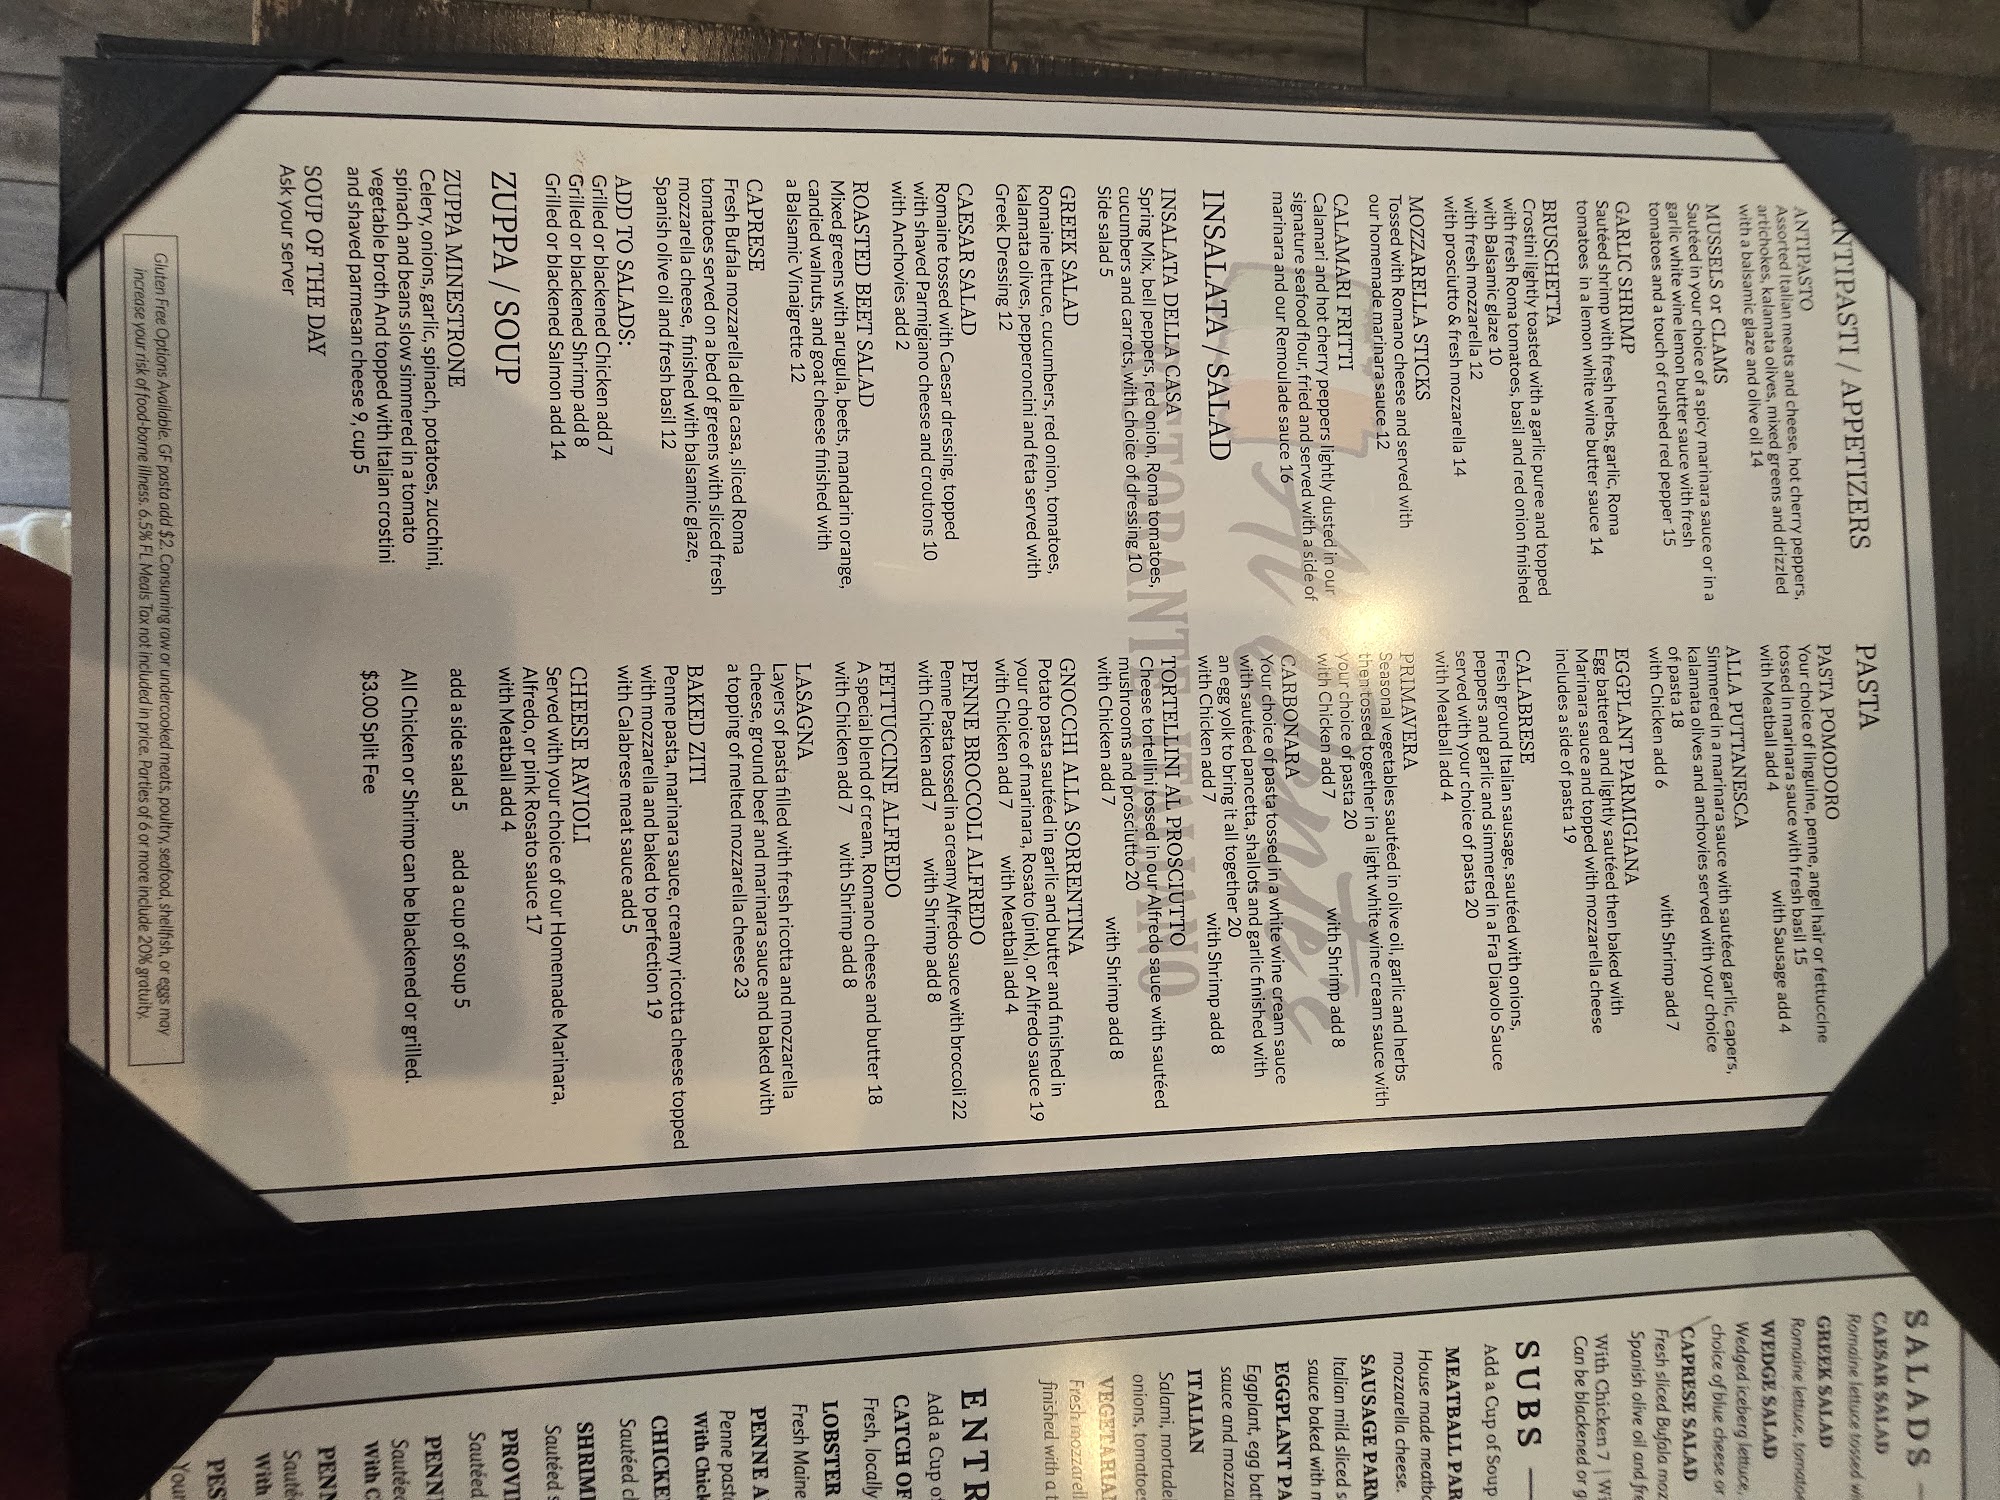 ANTIPASTI / APPETIZERS
ANTIPASTO
Assorted Italian meats and cheese, hot cherry peppers,
artichokes, kalamata olives, mixed greens and drizzled
with a balsamic glaze and olive oil 14
MUSSELS or CLAMS
Sautéed in your choice of a spicy marinara sauce or in a
garlic white wine lemon butter sauce with fresh
tomatoes and a touch of crushed red pepper 15
GARLIC SHRIMP
Sautéed shrimp with fresh herbs, garlic, Roma
tomatoes in a lemon white wine butter sauce 14
BRUSCHETTA
Crostini lightly toasted with a garlic puree and topped
with fresh Roma tomatoes, basil and red onion finished
with Balsamic glaze 10
with fresh mozzarella 12
with prosciutto & fresh mozzarella 14
MOZZARELLA STICKS
Tossed with Romano cheese and served with
our homemade marinara sauce 12
CALAMARI FRITTI
Calamari and hot cherry peppers lightly dusted in our
signature seafood flour, fried and served with a side of
marinara and our Remoulade sauce 16
INSALATA / SALAD
INSALATA DELLA CASA
Spring Mix, bell peppers, red onion, Roma tomatoes,
cucumbers and carrots, with choice of dressing 10
Side salad 5
GREEK SALAD
Romaine lettuce, cucumbers, red onion, tomatoes,
kalamata olives, pepperoncini and feta served with
Greek Dressing 12
CAESAR SALAD
Romaine tossed with Caesar dressing, topped
with shaved Parmigiano cheese and croutons 10
with Anchovies add 2
ROASTED BEET SALAD
Mixed greens with arugula, beets, mandarin orange,
candied walnuts, and goat cheese finished with
a Balsamic Vinaigrette 12
CAPRESE
Fresh Bufala mozzarella della casa, sliced Roma
tomatoes served on a bed of greens with sliced fresh
mozzarella cheese, finished with balsamic glaze,
Spanish olive oil and fresh basil 12
ADD TO SALADS:
Grilled or blackened Chicken add 7
Grilled or blackened Shrimp add 8
Grilled or blackened Salmon add 14
ZUPPA / SOUP
ZUPPA MINESTRONE
Celery, onions, garlic, spinach, potatoes, zucchini,
spinach and beans slow simmered in a tomato
vegetable broth And topped with Italian crostini
and shaved parmesan cheese 9, cup 5
SOUP OF THE DAY
Ask your server
PASTA
PASTA POMODORO
Your choice of linguine, penne, angel hair or fettuccine
tossed in marinara sauce with fresh basil 15
with Meatball add 4 with Sausage add 4
ALLA PUTTANESCA
Simmered in a marinara sauce with sautéed garlic, capers,
kalamata olives and anchovies served with your choice
of pasta 18
with Chicken add 6 with Shrimp add 7
EGGPLANT PARMIGIANA
Egg battered and lightly sautéed then baked with
Marinara sauce and topped with mozzarella cheese
includes a side of pasta 19
CALABRESE
Fresh ground Italian sausage, sautéed with onions,
peppers and garlic and simmered in a Fra Diavolo Sauce
served with your choice of pasta 20
with Meatball add 4
PRIMAVERA
Seasonal vegetables sautéed in olive oil, garlic and herbs
then tossed together in a light white wine cream sauce with
your choice of pasta 20
with Chicken add 7 with Shrimp add 8
CARBONARA
Your choice of pasta tossed in a white wine cream sauce
with sautéed pancetta, shallots and garlic finished with
an egg yolk to bring it all together 20
with Chicken add 7 with Shrimp add 8
TORTELLINI AL PROSCIUTTO
Cheese tortellini tossed in our Alfredo sauce with sautéed
mushrooms and prosciutto 20
with Chicken add 7 with Shrimp add 8
GNOCCHI ALLA SORRENTINA
Potato pasta sautéed in garlic and butter and finished in
your choice of marinara, Rosato (pink), or Alfredo sauce 19
with Chicken add 7 with Meatball add 4
PENNE BROCCOLI ALFREDO
Penne Pasta tossed in a creamy Alfredo sauce with broccoli 22
with Chicken add 7 with Shrimp add 8
FETTUCCINE ALFREDO
A special blend of cream, Romano cheese and butter 18
with Chicken add 7 with Shrimp add 8
LASAGNA
Layers of pasta filled with fresh ricotta and mozzarella
cheese, ground beef and marinara sauce and baked with
a topping of melted mozzarella cheese 23
BAKED ZITI
Penne pasta, marinara sauce, creamy ricotta cheese topped
with mozzarella and baked to perfection 19
with Calabrese meat sauce add 5
CHEESE RAVIOLI
Served with your choice of our Homemade Marinara,
Alfredo, or pink Rosato sauce 17
with Meatball add 4
add a side salad 5 add a cup of soup 5
All Chicken or Shrimp can be blackened or grilled.
$3.00 Split Fee
Al Dente's
RISTORANTE ITALIANO
Gluten Free Options Available. GF pasta add $2. Consuming raw or undercooked meats, poultry, seafood, shellfish, or eggs may
increase your risk of food-borne illness. 6.5% FL Meals Tax not included in price. Parties of 6 or more include 20% gratuity.
SALADS
CAESAR SALAD
Romaine lettuce tossed wi
GREEK SALAD
Romaine lettuce, tomatoe
WEDGE SALAD
Wedged iceberg lettuce,
choice of blue cheese or
CAPRESE SALAD
Fresh sliced Bufala moz
Spanish olive oil and fre
With Chicken 7 | Wi
Can be blackened or g
SUBS
Add a Cup of Soup
MEATBALL PAR
House made meatba
mozzarella cheese.
SAUSAGE PARM
Italian mild sliced s
sauce baked with m
EGGPLANT PA
Eggplant, egg bat
sauce and mozza
ITALIAN
Salami, mortade
onions, tomatoes
VEGETARIAN
Fresh mozzarell
finished with a t
ENTR
Add a Cup o
CATCH OF
Fresh, locally
LOBSTER
Fresh Maine
PENNE A
Penne past
With Chick
CHICKE
Sautéed c
SHRIM
Sautéed s
PROVI
Sautéed
PENN
Sautée
With C
PENN
Sauté
With
PES
Your